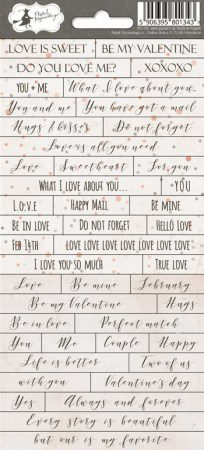 5 906395 801343
LOVE IS SWEET BE MY VALENTINE
DO YOU LOVE ME? XOXOXO
YOU + ME What I love about you...
You and me You have got a mail
Hugs & kisses Do not forget
Love is all you need
Love Sweetheart For you
WHAT I LOVE ABOUT YOU... YOU
Love HAPPY MAIL BE MINE
BE IN LOVE DO NOT FORGET HELLO LOVE
FEB 14TH LOVE LOVE LOVE LOVE LOVE LOVE
I LOVE YOU SO MUCH TRUE LOVE
Love Be mine February
Be my Valentine Hugs
Be in love Perfect match
You Me Couple Happy
Life is better Two of us
with you Valentine's day
Yes Always and forever
Every story is beautiful
but our is my favorite